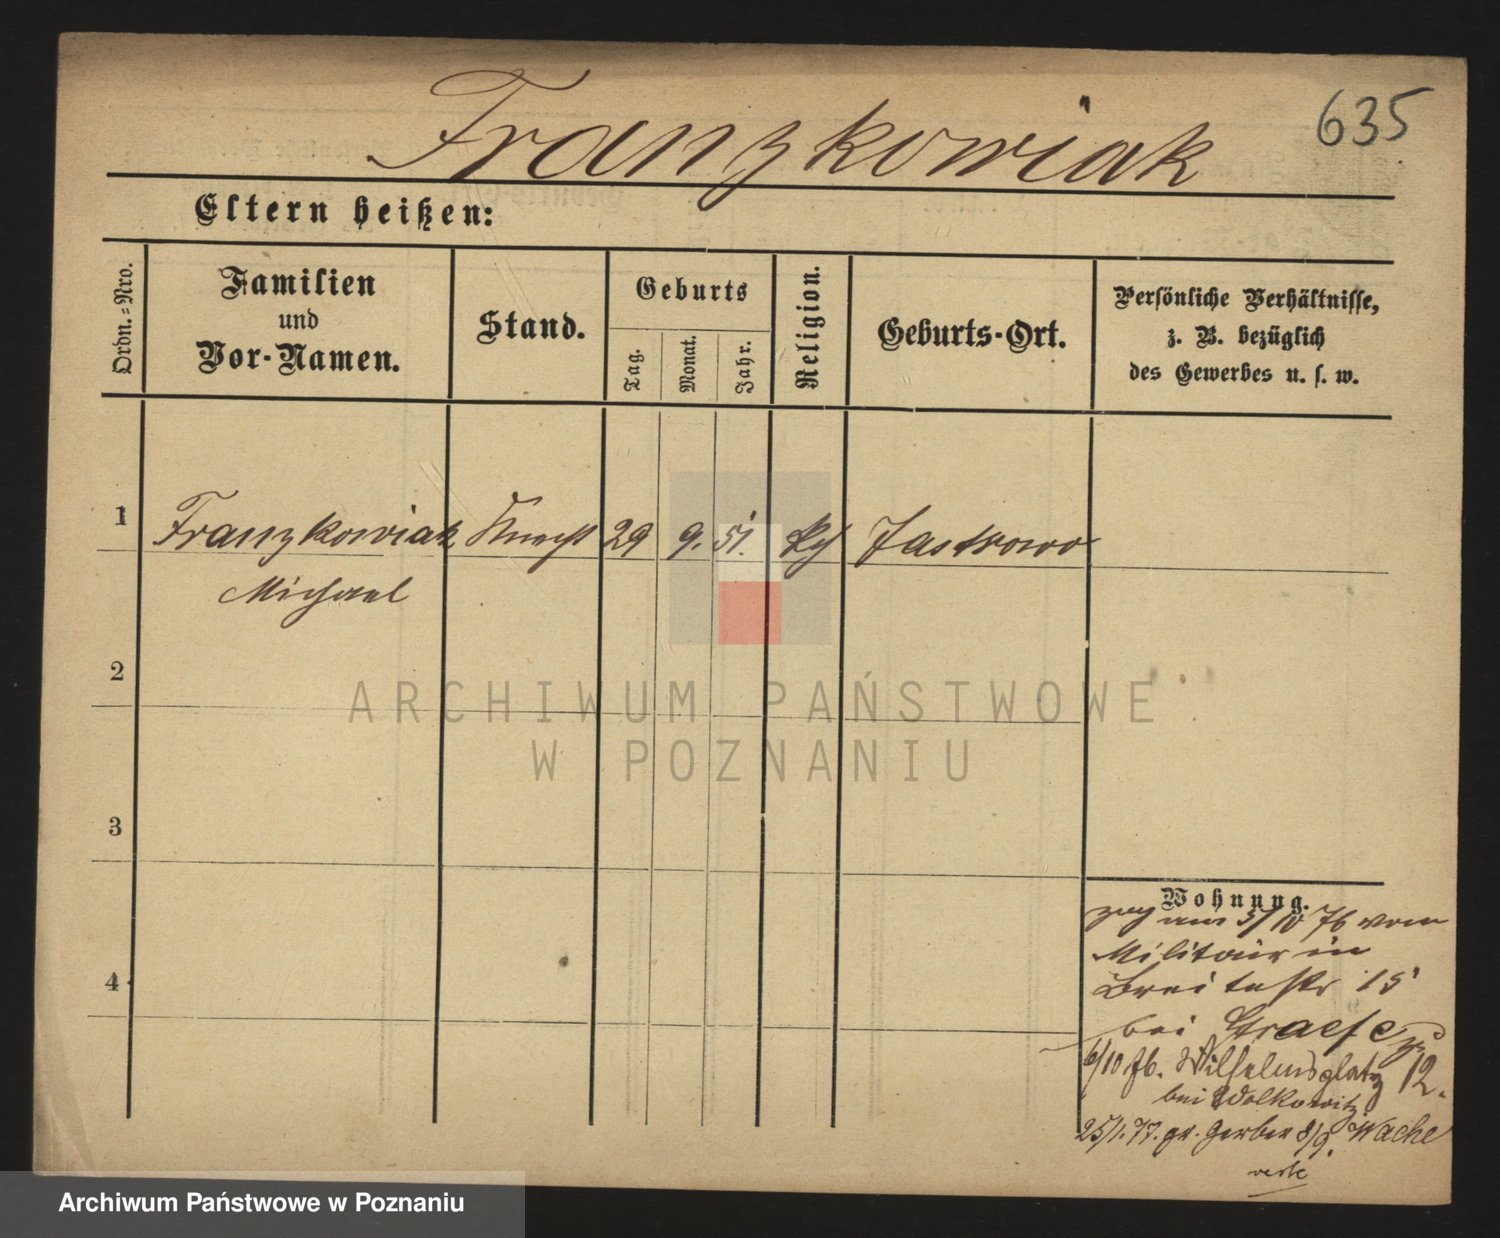 635
Franzkowiak
Eltern heißen:
Ordn.-Nro.
Familien
und
Vor-Namen.
Stand.
Geburts
Tag.
Monat.
Jahr.
Religion.
Geburts-Ort.
Persönliche Verhältnisse,
z. B. bezüglich
des Gewerbes u. s. w.
1
Franzkowiak Knecht 29 9. 51. Jastrowo
Michael
2
3
4
Wohnung.
zug aus 5/10 76 vom
Militair in
Breitestr 15
bei Graefe
6/10 76. Wilhelmsplatz 12.
bei Wolkowitz
25/1. 77. gr. Gerber 8/9. Wache
ARCHIWUM PAŃSTWOWE
W POZNANIU
Archiwum Państwowe w Poznaniu